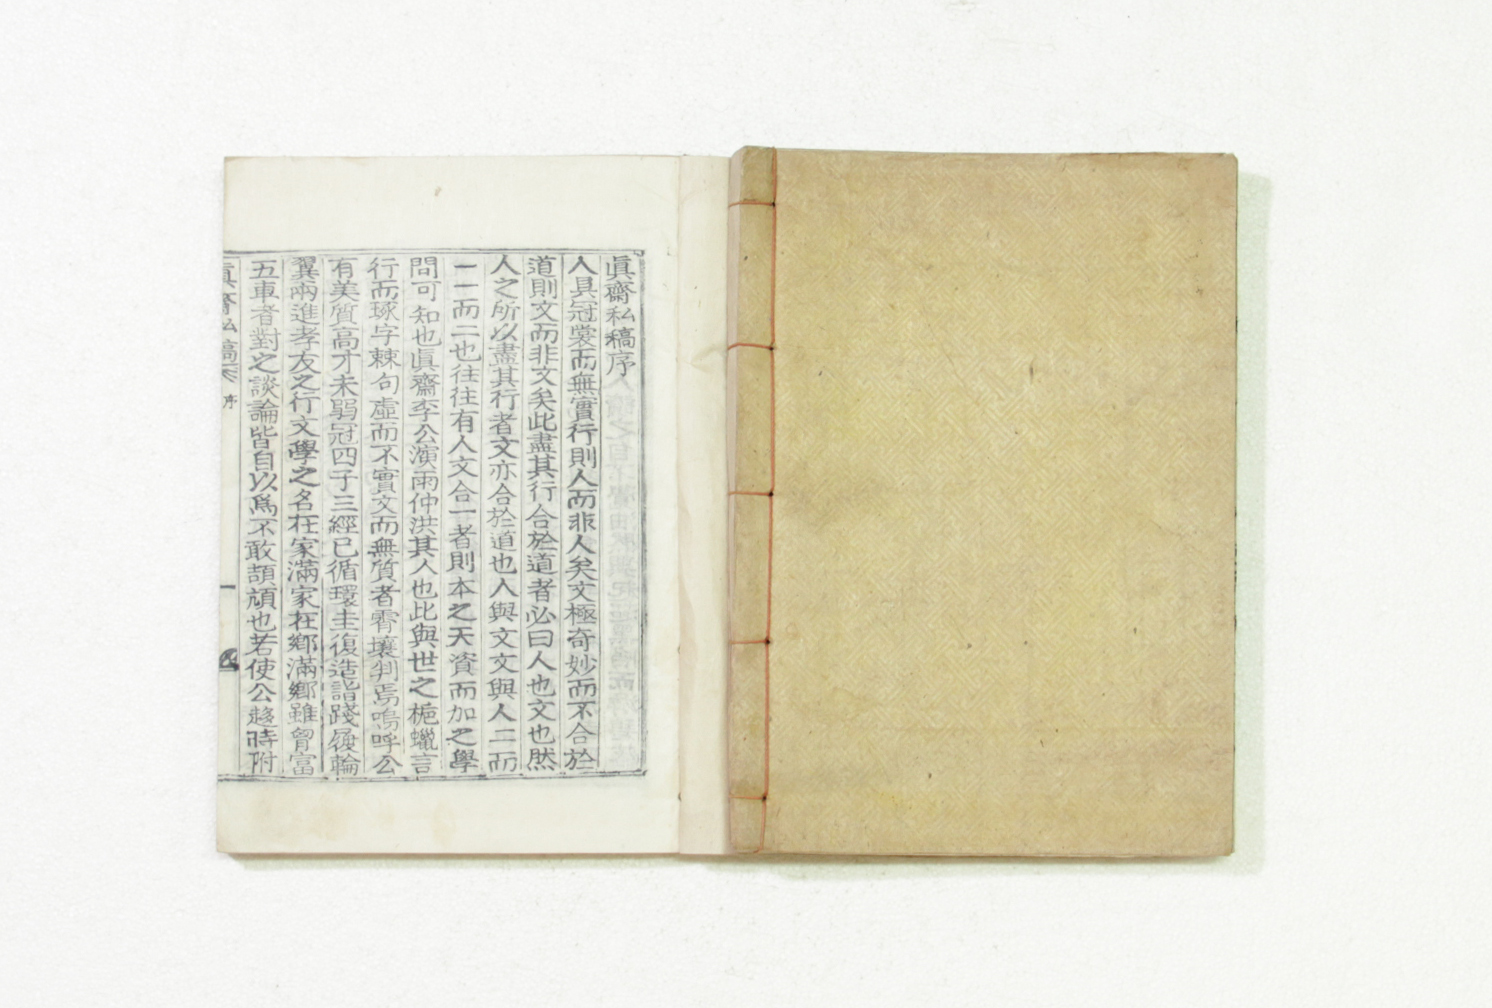 眞齋私稿序
人具冠裳而無實行則人而非人矣文極奇妙而不合於
道則文而非文矣此盡其行合於道者必曰人也文也然
人之所以盡其行者文亦合於道也人與文文與人二而
一一而二也往往有人文合一者則本之天資而加之學
問可知也眞齋李公演雨仲洪其人也此與世之梔蠟言
行而琢字棘句虛而不實文而無質者霄壤判焉嗚呼公
有美質高才未弱冠四子三經已循環圭復造詣踐履輪
翼兩進孝友之行文學之名在家滿家在鄕滿鄕雖胷富
五車者對之談論皆自以爲不敢頡頏也若使公趍時附
眞齋私稿 序 一